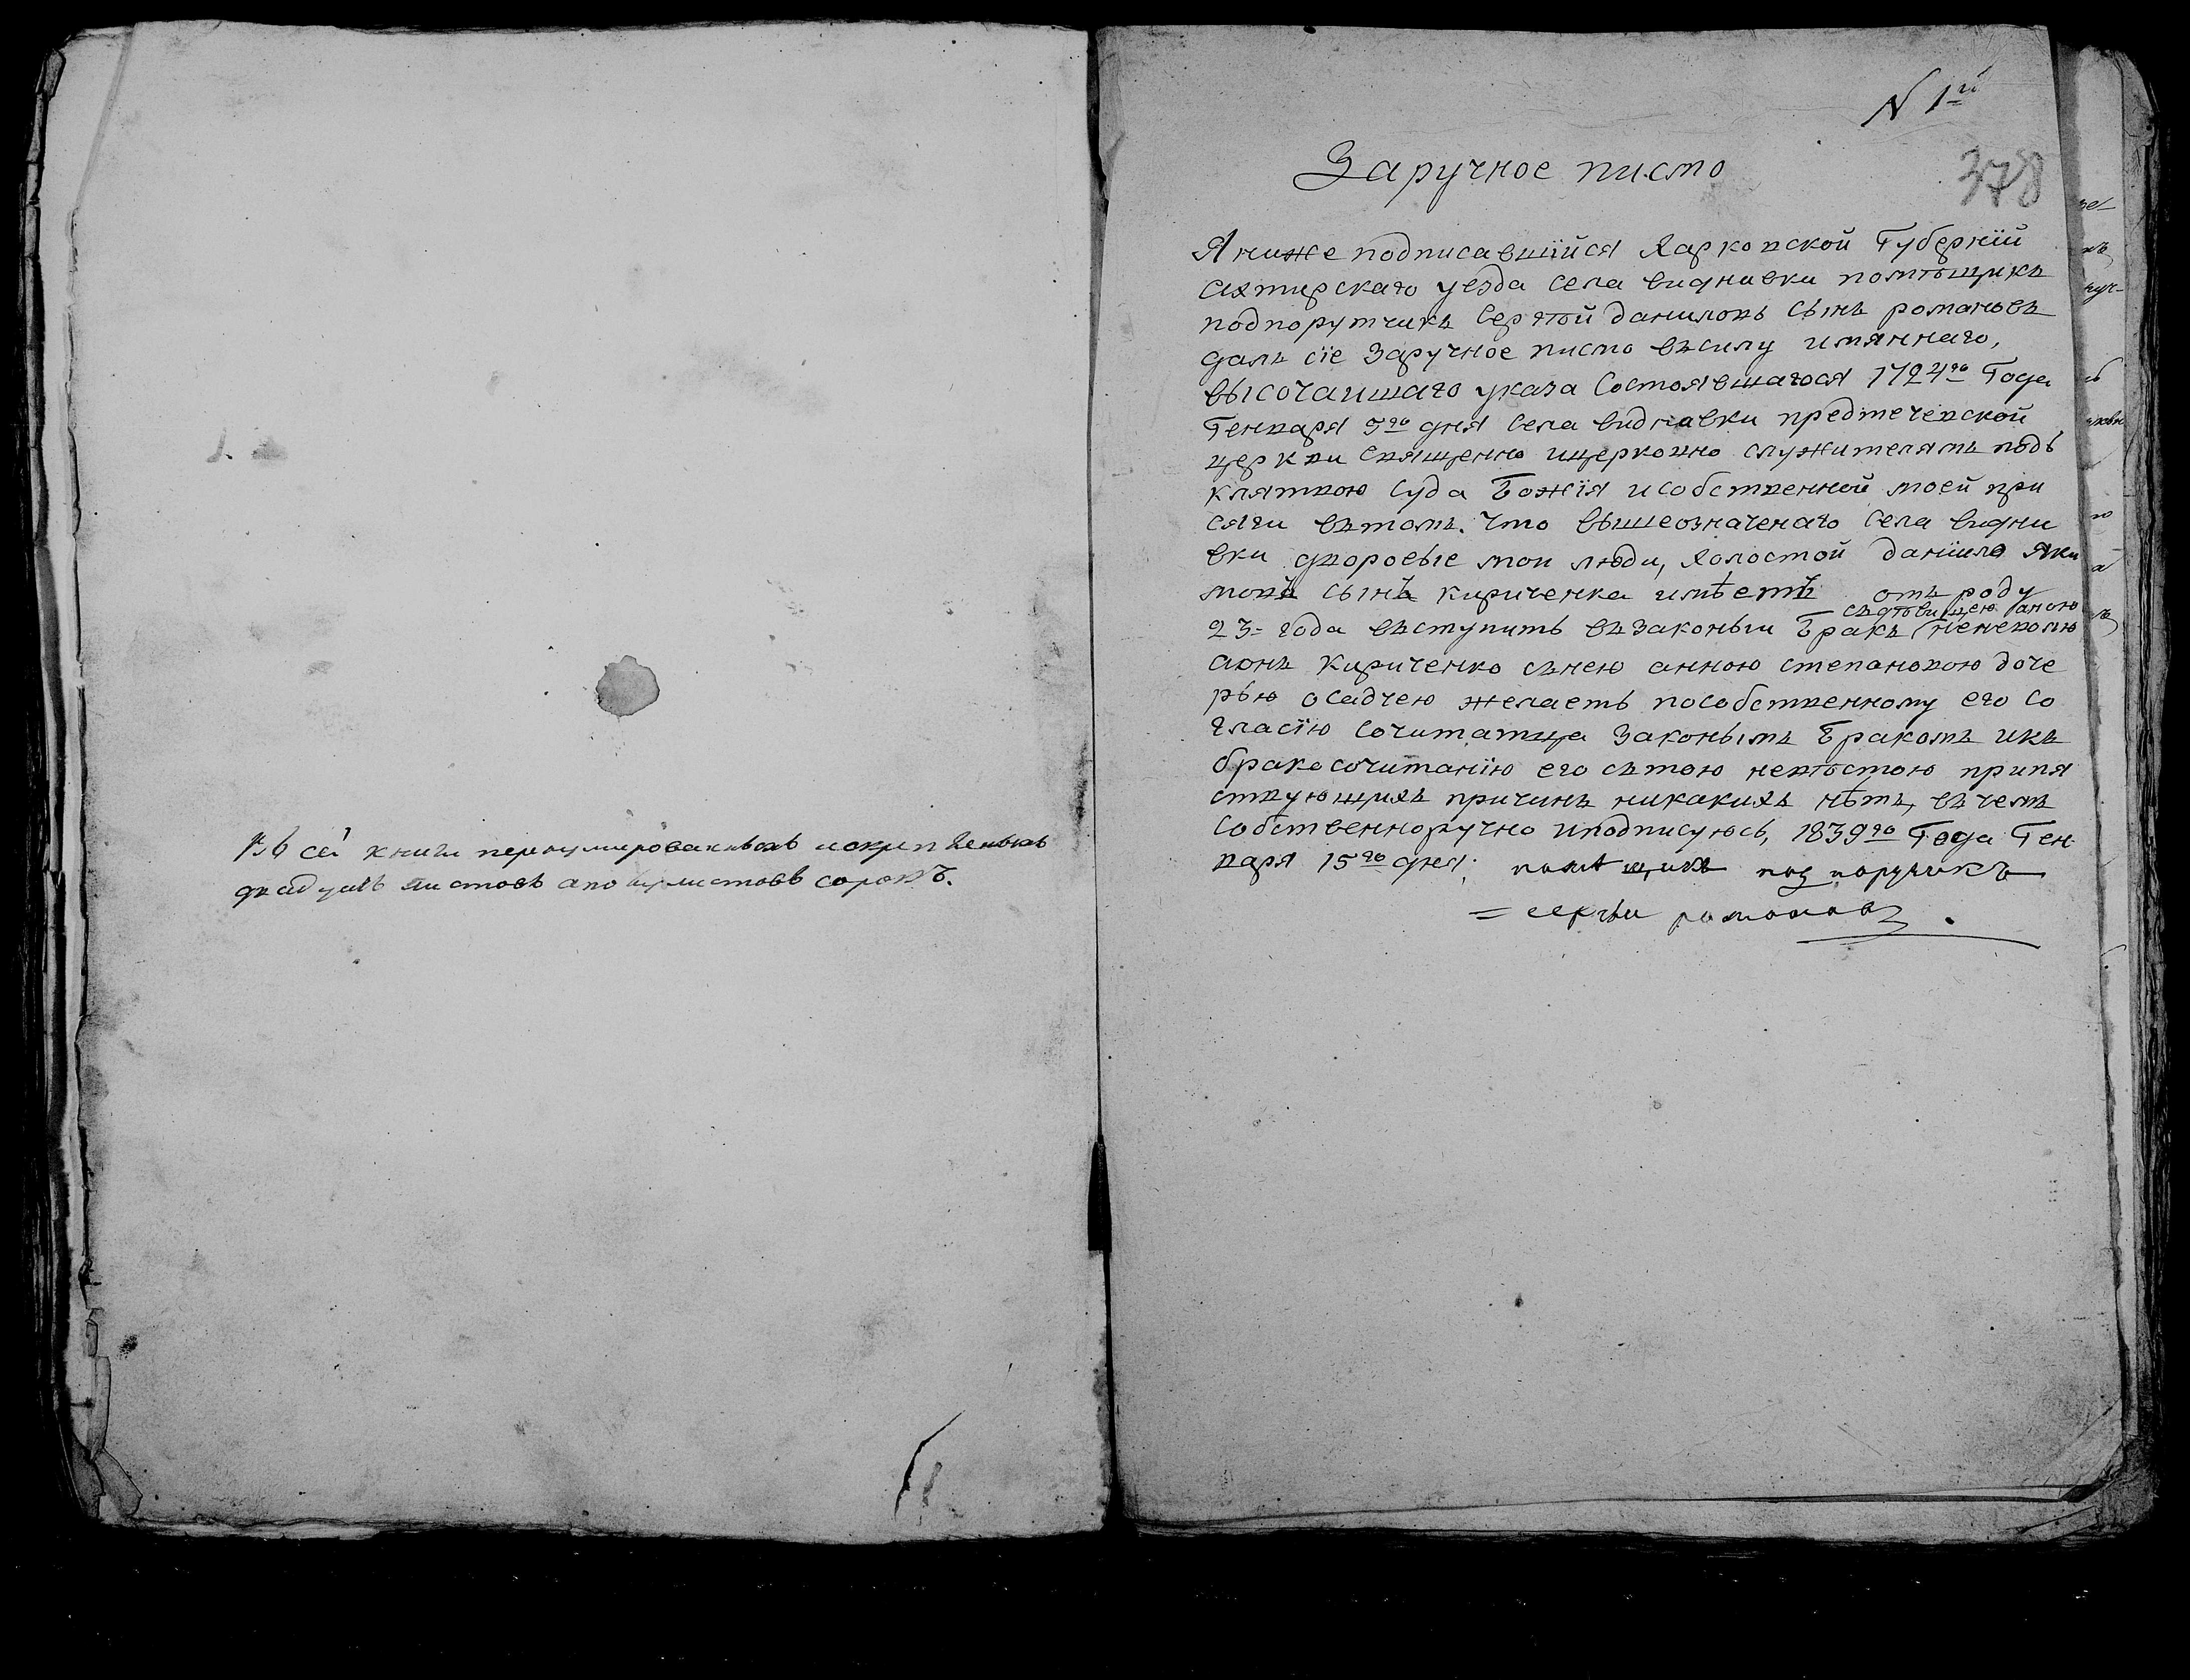 Въ сей книги перенумированныхъ искрепленыхъ
двадцать листовъ апо полулистовъ сорокъ.
N 1й
378
Заручное писмо
Я ниже подписавшiйся Харковской Губернiй
Ахтирскаго уезда села видневки помѣщикъ
подпорутчикъ Сергѣй даниловъ сынъ романовъ
далъ сïе заручное писмо въсилу имяннаго,
высочаишаго указа Состоявшагося 1724го Года
Генваря 5го дня Села видневки предтеченской
церкви Священно ицерковно служителямъ подъ
клятвою Суда Божïя исобственной моей при
сяги вътомъ. что вышеозначенаго Села видни
вки дворовые мои люди, холостой данïило Яки
мовъ сынъ кириченка имѣетъ отъ роду
23= года въступить въ законыи Бракъ
съдѣвицею аною
аонъ Кириченко снею анною степановою доче
рью осадчею желаетъ пособственному его со
гласïю Сочитатца Законымъ Бракомъ икъ
бракосочитанïю его сътою невѣстою припя
ствующихъ причинъ никакихъ нѣтъ, въ чемъ
Собственноручно иподписуюсь, 1839го Года Ген
варя 15го дня; помѣщикъ подпоручикъ
= сергѣи романовъ.